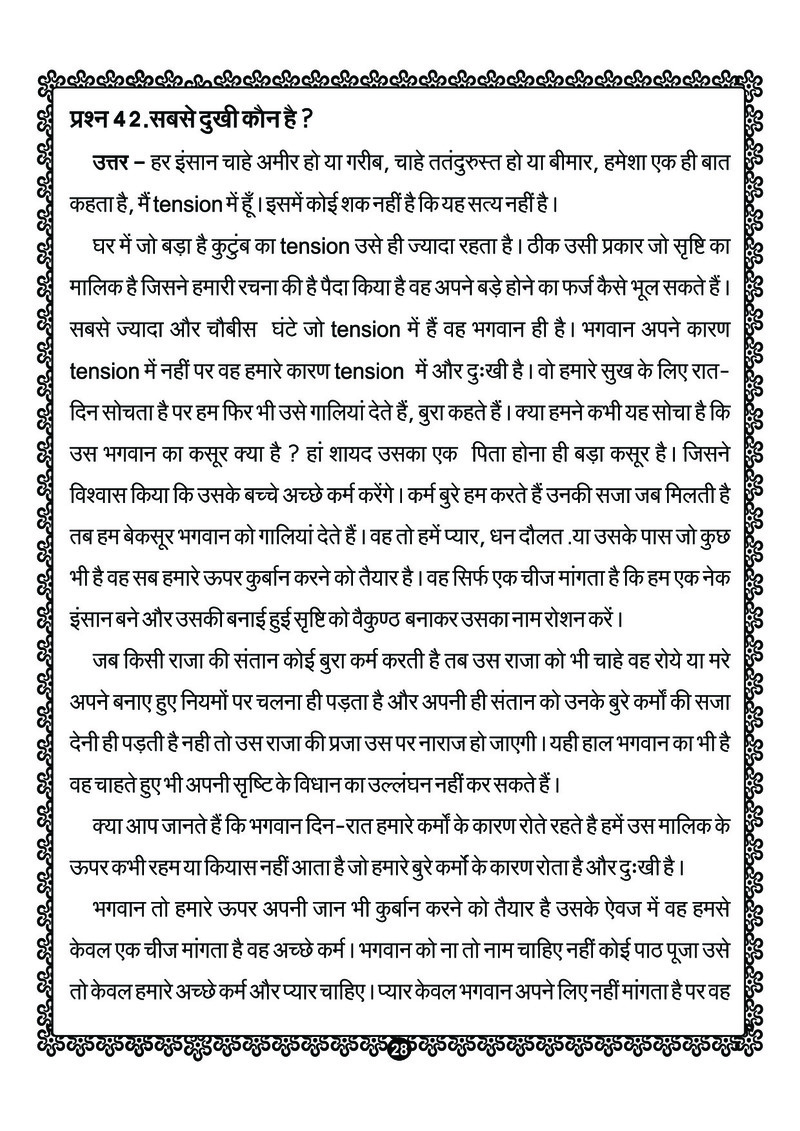 प्रश्न 42.सबसे दुखी कौन है ?
उत्तर - हर इंसान चाहे अमीर हो या गरीब, चाहे ततंदुरुस्त हो या बीमार, हमेशा एक ही बात
कहता है, मैं tension में हूँ । इसमें कोई शक नहीं है कि यह सत्य नहीं है ।
घर में जो बड़ा है कुटुंब का tension उसे ही ज्यादा रहता है । ठीक उसी प्रकार जो सृष्टि का
मालिक है जिसने हमारी रचना की है पैदा किया है वह अपने बड़े होने का फर्ज कैसे भूल सकते हैं ।
सबसे ज्यादा और चौबीस घंटे जो tension में हैं वह भगवान ही है । भगवान अपने कारण
tension में नहीं पर वह हमारे कारण tension में और दुःखी है । वो हमारे सुख के लिए रात-
दिन सोचता है पर हम फिर भी उसे गालियां देते हैं, बुरा कहते हैं । क्या हमने कभी यह सोचा है कि
उस भगवान का कसूर क्या है ? हां शायद उसका एक पिता होना ही बड़ा कसूर है । जिसने
विश्वास किया कि उसके बच्चे अच्छे कर्म करेंगे । कर्म बुरे हम करते हैं उनकी सजा जब मिलती है
तब हम बेकसूर भगवान को गालियां देते हैं । वह तो हमें प्यार, धन दौलत .या उसके पास जो कुछ
भी है वह सब हमारे ऊपर कुर्बान करने को तैयार है । वह सिर्फ एक चीज मांगता है कि हम एक नेक
इंसान बने और उसकी बनाई हुई सृष्टि को वैकुण्ठ बनाकर उसका नाम रोशन करें ।
जब किसी राजा की संतान कोई बुरा कर्म करती है तब उस राजा को भी चाहे वह रोये या मरे
अपने बनाए हुए नियमों पर चलना ही पड़ता है और अपनी ही संतान को उनके बुरे कर्मों की सजा
देनी ही पड़ती है नही तो उस राजा की प्रजा उस पर नाराज हो जाएगी । यही हाल भगवान का भी है
वह चाहते हुए भी अपनी सृष्टि के विधान का उल्लंघन नहीं कर सकते हैं ।
क्या आप जानते हैं कि भगवान दिन-रात हमारे कर्मों के कारण रोते रहते है हमें उस मालिक के
ऊपर कभी रहम या कियास नहीं आता है जो हमारे बुरे कर्मों के कारण रोता है और दुःखी है ।
भगवान तो हमारे ऊपर अपनी जान भी कुर्बान करने को तैयार है उसके ऐवज में वह हमसे
केवल एक चीज मांगता है वह अच्छे कर्म । भगवान को ना तो नाम चाहिए नहीं कोई पाठ पूजा उसे
तो केवल हमारे अच्छे कर्म और प्यार चाहिए । प्यार केवल भगवान अपने लिए नहीं मांगता है पर वह
28